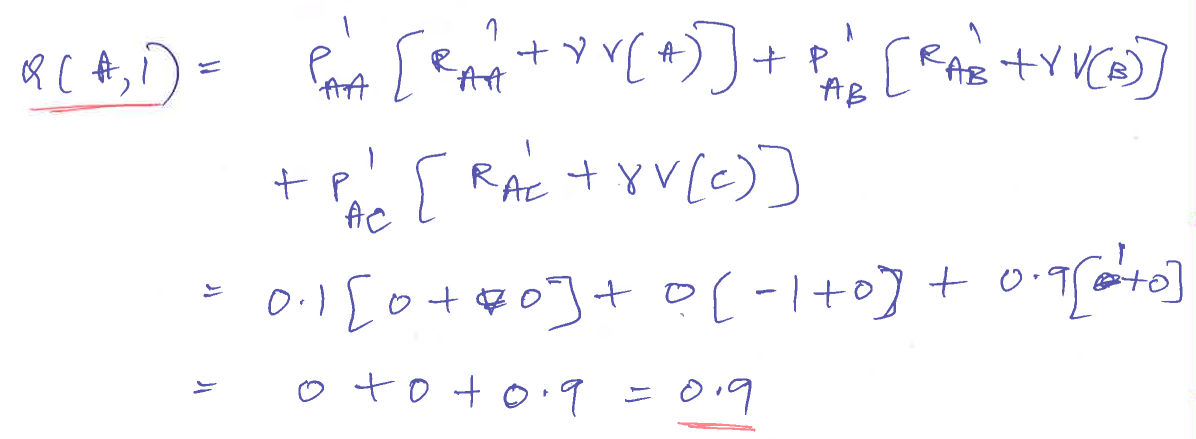 Q(A,1) = P¹AA [R¹AA + γ V(A)] + P¹AB [R¹AB + γ V(B)]
+ P¹AC [R¹AC + γ V(C)]
= 0.1[0 + 0] + 0[-1+0] + 0.9[1+0]
= 0 + 0 + 0.9 = 0.9